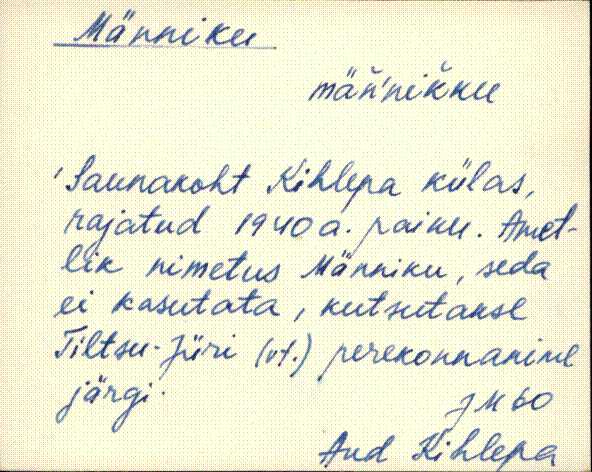 Männiku
mäň'nikku
Saunakoht Kihlepa külas,
rajatud 1940 a. paiku. Amet-
lik nimetus Männiku, seda
ei kasutata, kutsutakse
Tiltsu-Jüri (vt.) perekonnanime
järgi.
JM 60
Aud Kihlepa